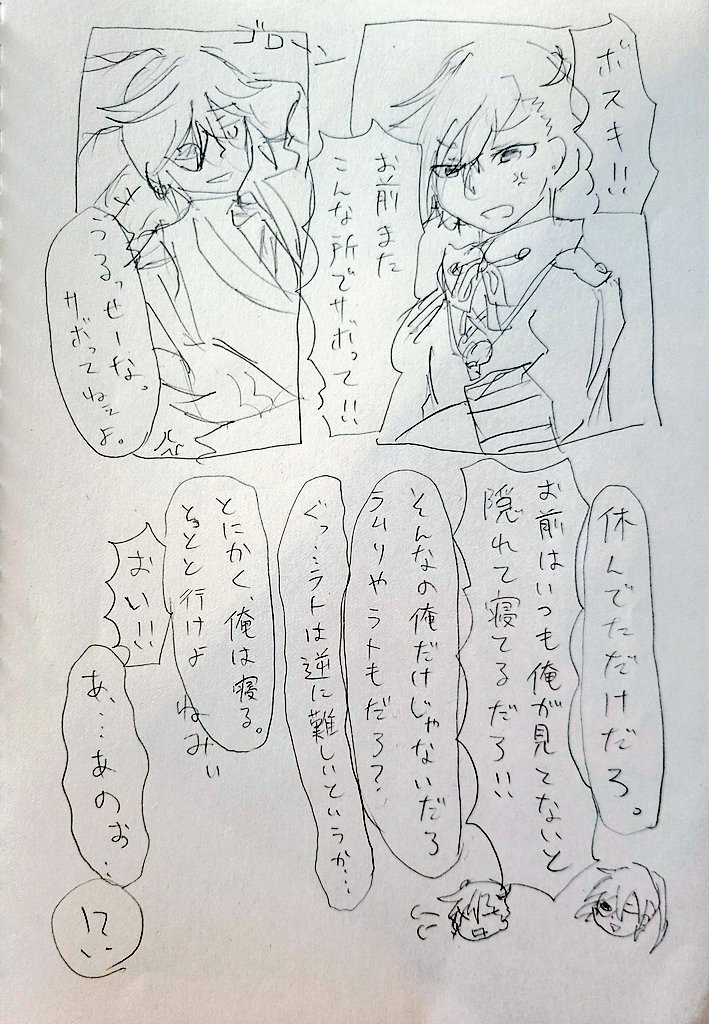 ボスキ!!
お前また
こんな所でサボって!!
ゴローン
うるっせーな、
サボってねぇよ。
休んでただけだろ。
お前はいつも俺が見てないと
隠れて寝てるだろ!!
そんなの俺だけじゃないだろ
ラムリやラトもだろ?
ぐっ…ラトは逆に難しいというか…
とにかく、俺は寝る。
とっとと行けよ
ねみぃ
おい!!
あ、…あのぉ…
!?